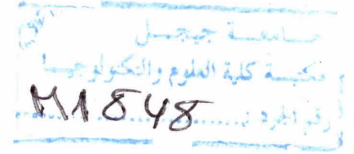 جامعة جيجل
مكتبة كلية العلوم والتكنولوجيا
رقم الجرد :
M1848